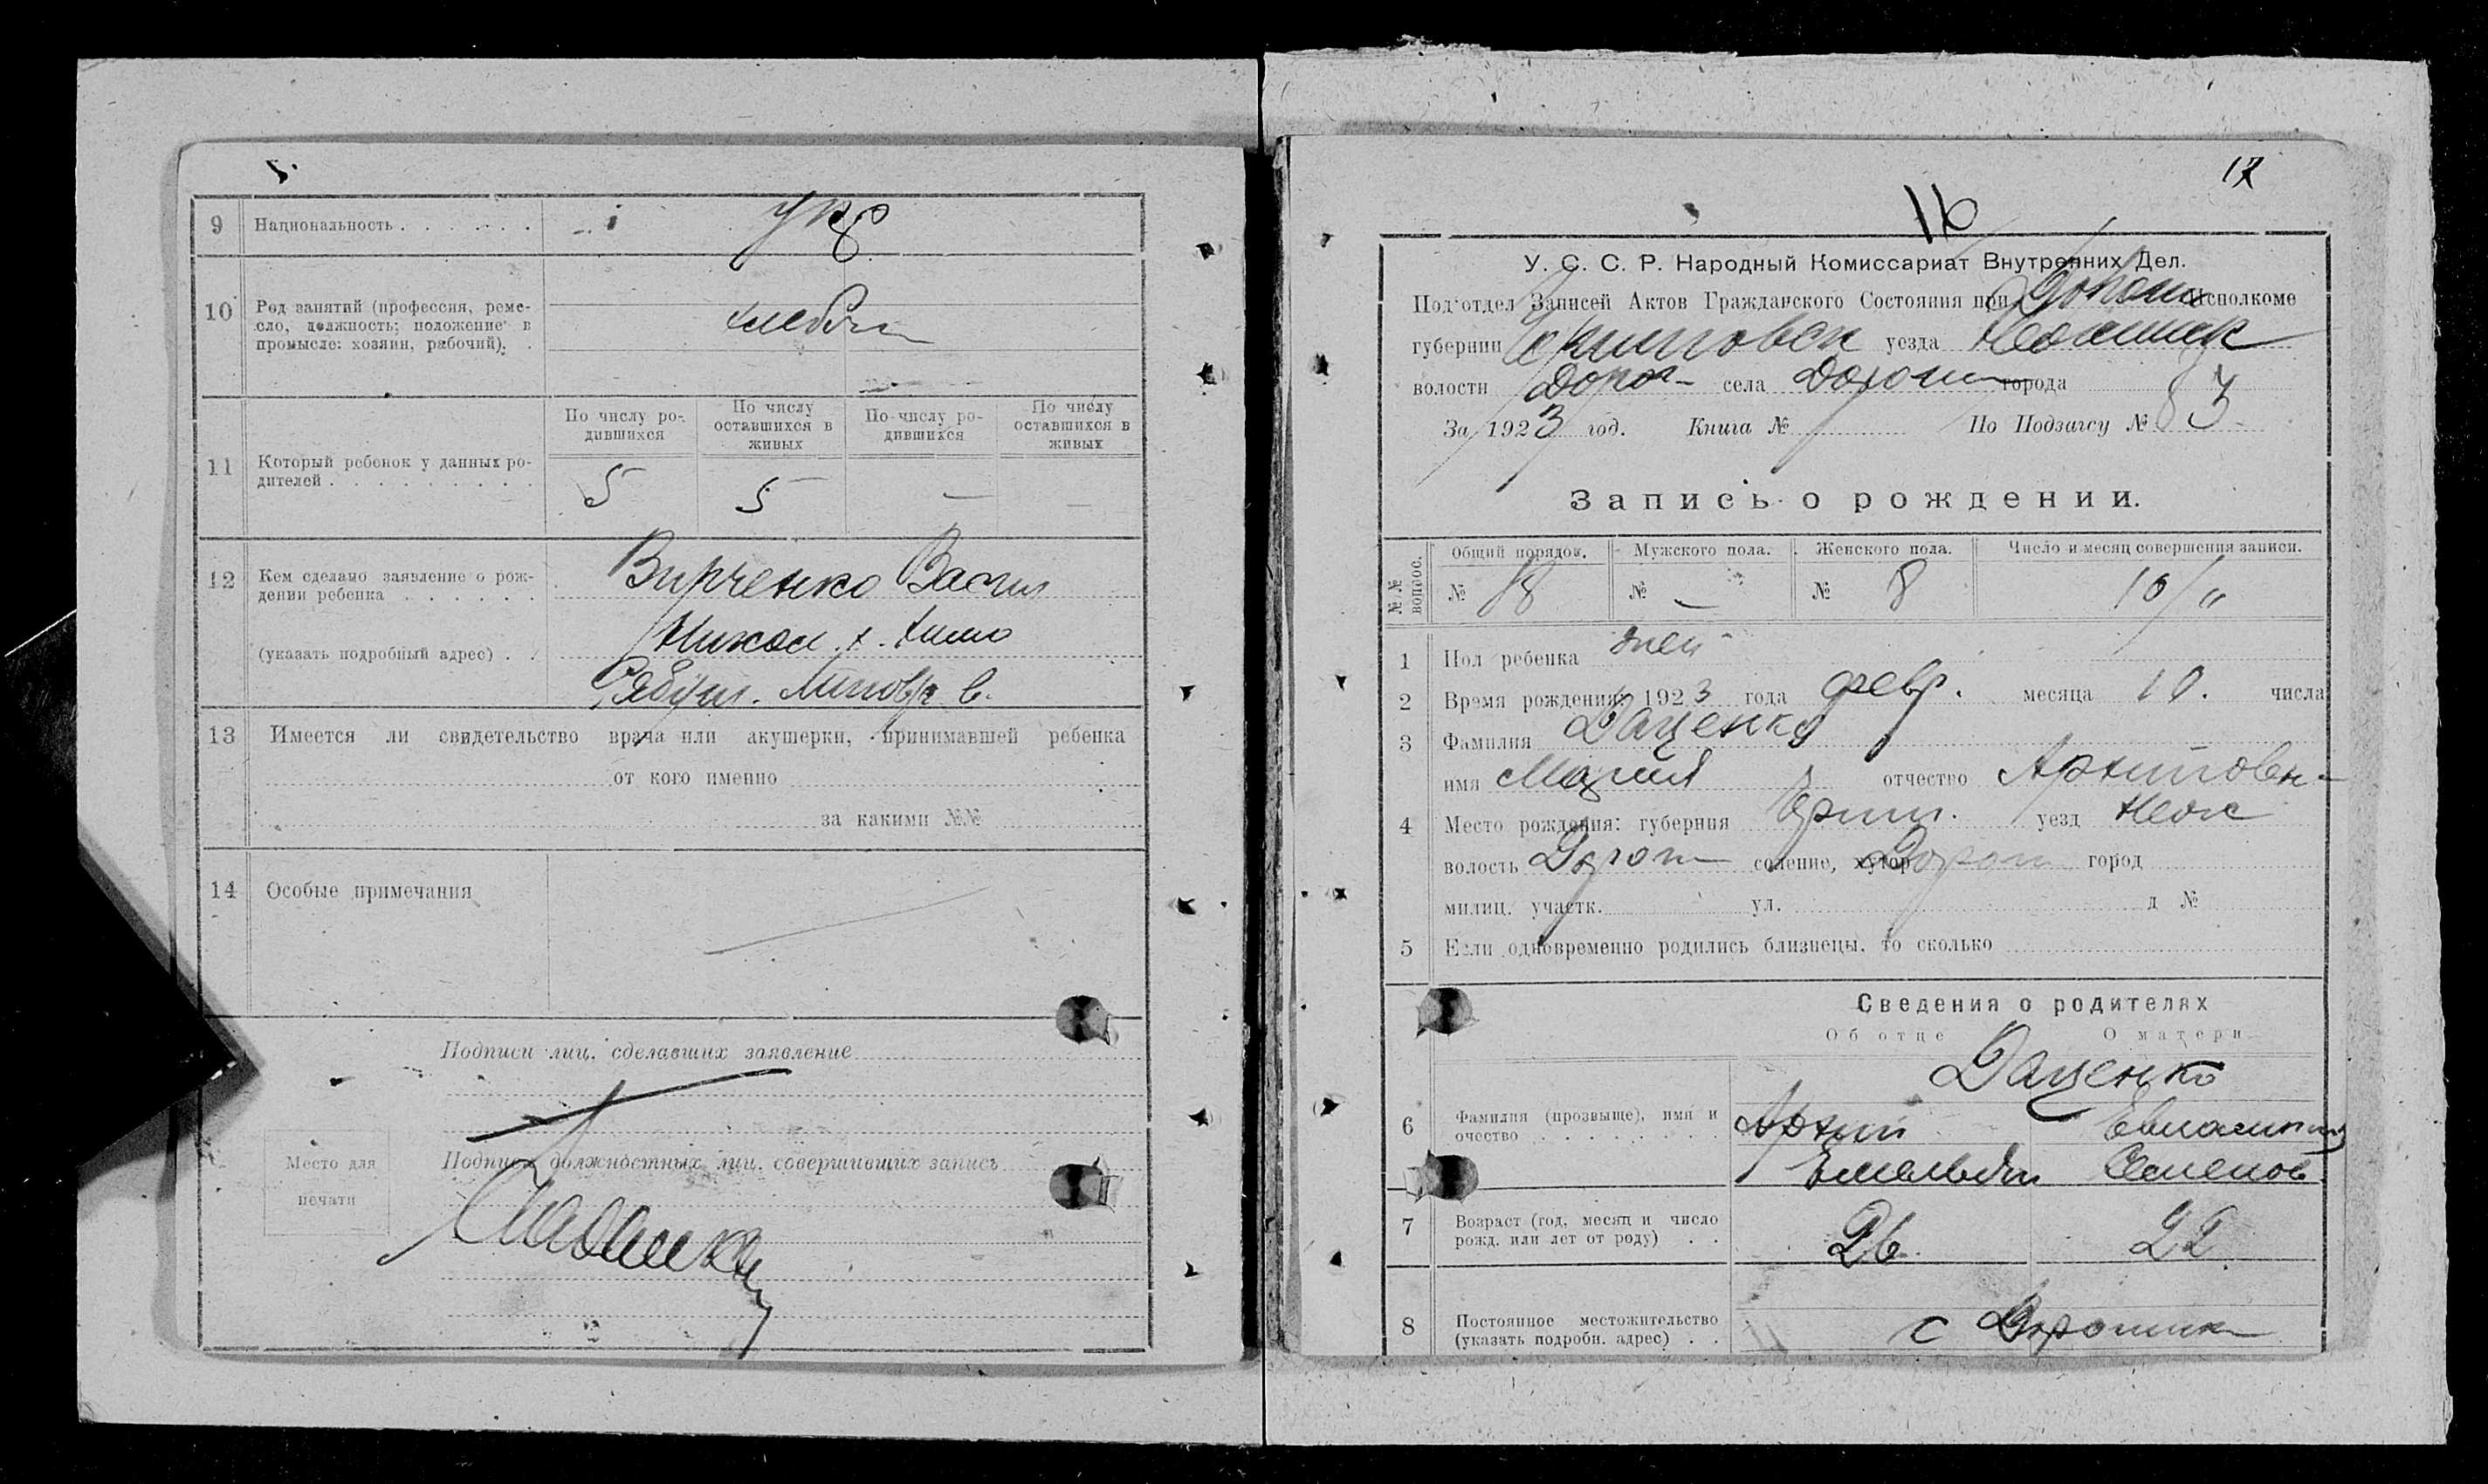 9 Национальность . . . . . . укр
10 Род занятий (профессия, реме-
сло, должность; положение в
промысле: хозяин, рабочий). .
хлебоп
11 Который ребенок у данных ро-
дителей . . . . . . . . .
По числу ро-
дившихся
По числу
оставшихся в
живых
По числу ро-
дившихся
По числу
оставшихся в
живых
5 5 — —
12 Кем сделано заявление о рож-
дении ребенка . . . . . .
Вирченко Васил
(указать подробный адрес) . .
13 Имеется ли свидетельство врача или акушерки, принимавшей ребенка
от кого именно
за какими №№
14 Особые примечания
Подписи лиц, сделавших заявление
Место для
печати
Подписи должностных лиц, совершивших запись
17
16
У. С. С. Р. Народный Комиссариат Внутренних Дел.
Под'отдел Записей Актов Гражданского Состояния при Исполкоме
губернии Черниговск уезда
волости Дорог- села Дорогин города
За 1923 год. Книга № По Подзагсу № 83
Запись о рождении.
№№ вопрос.
Общий порядов. Мужского пола. Женского пола. Число и месяц совершения записи.
№ 18 № — № 8 10/"
1 Пол ребенка жен
2 Время рождения: 1923 года февр. месяца 10. числа
3 Фамилия Даценко
имя Мария отчество Архиповн-
4 Место рождения: губерния Черниг. уезд Неж
волость Дорог селение, хутор Дорог город
милиц. участк. ул. д №
5 Если одновременно родились близнецы, то сколько
Сведения о родителях
Об отце О матери
Даценко
6 Фамилия (прозвыще), имя и
очество . . . . . . . .
Архип
Емельян Семенов
7 Возраст (год, месяц и число
рожд. или лет от роду) . .
26 22
8 Постоянное местожительство
(указать подробн. адрес) . .
с Дорогинка